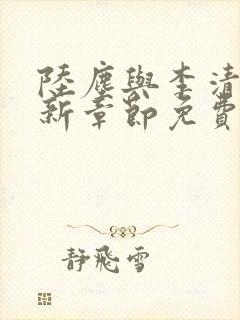 陸塵與李清
新章節免費
靜飛雪